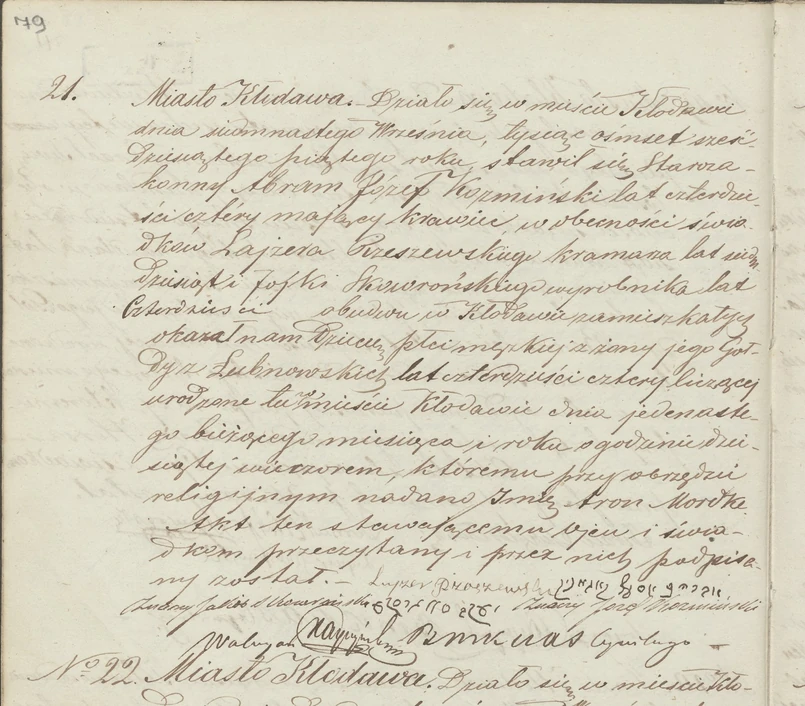 79
21. Miasto Kłodawa. – Działo się w mieście Kłodawie
dnia siedmnastego Września, tysiąc ośmset sześć-
dziesiątego piątego roku, stawił się Staroza-
konny Abram Józef Koźmiński lat czterdzie-
ści cztéry mający krawiec, w obecności świa-
dków Lajzera Przeszewskiego kramarza lat siedm
dziesiąt i Jośki Skowrońskiego wyrobnika lat
Czterdzieści obudwu w Kłodawie zamieszkałych
okazał nam Dziecię płci męzkiej z żony jego Goł-
dy z Lubnowskich lat czterdzieści cztery liczącej
urodzone tu w mieście Kłodawie dnia jedenaste-
go bieżącego miesiąca i roku o godzinie dzie-
siątej wieczorem, któremu przy obrzędzie
religijnym nadano Imię Aron Mordka.
Akt ten stawającemu ojcu i świa-
dkom przeczytany i przez nich podpisa-
ny został. –
No 22. Miasto Kłodawa. Działo się w mieście Kło-